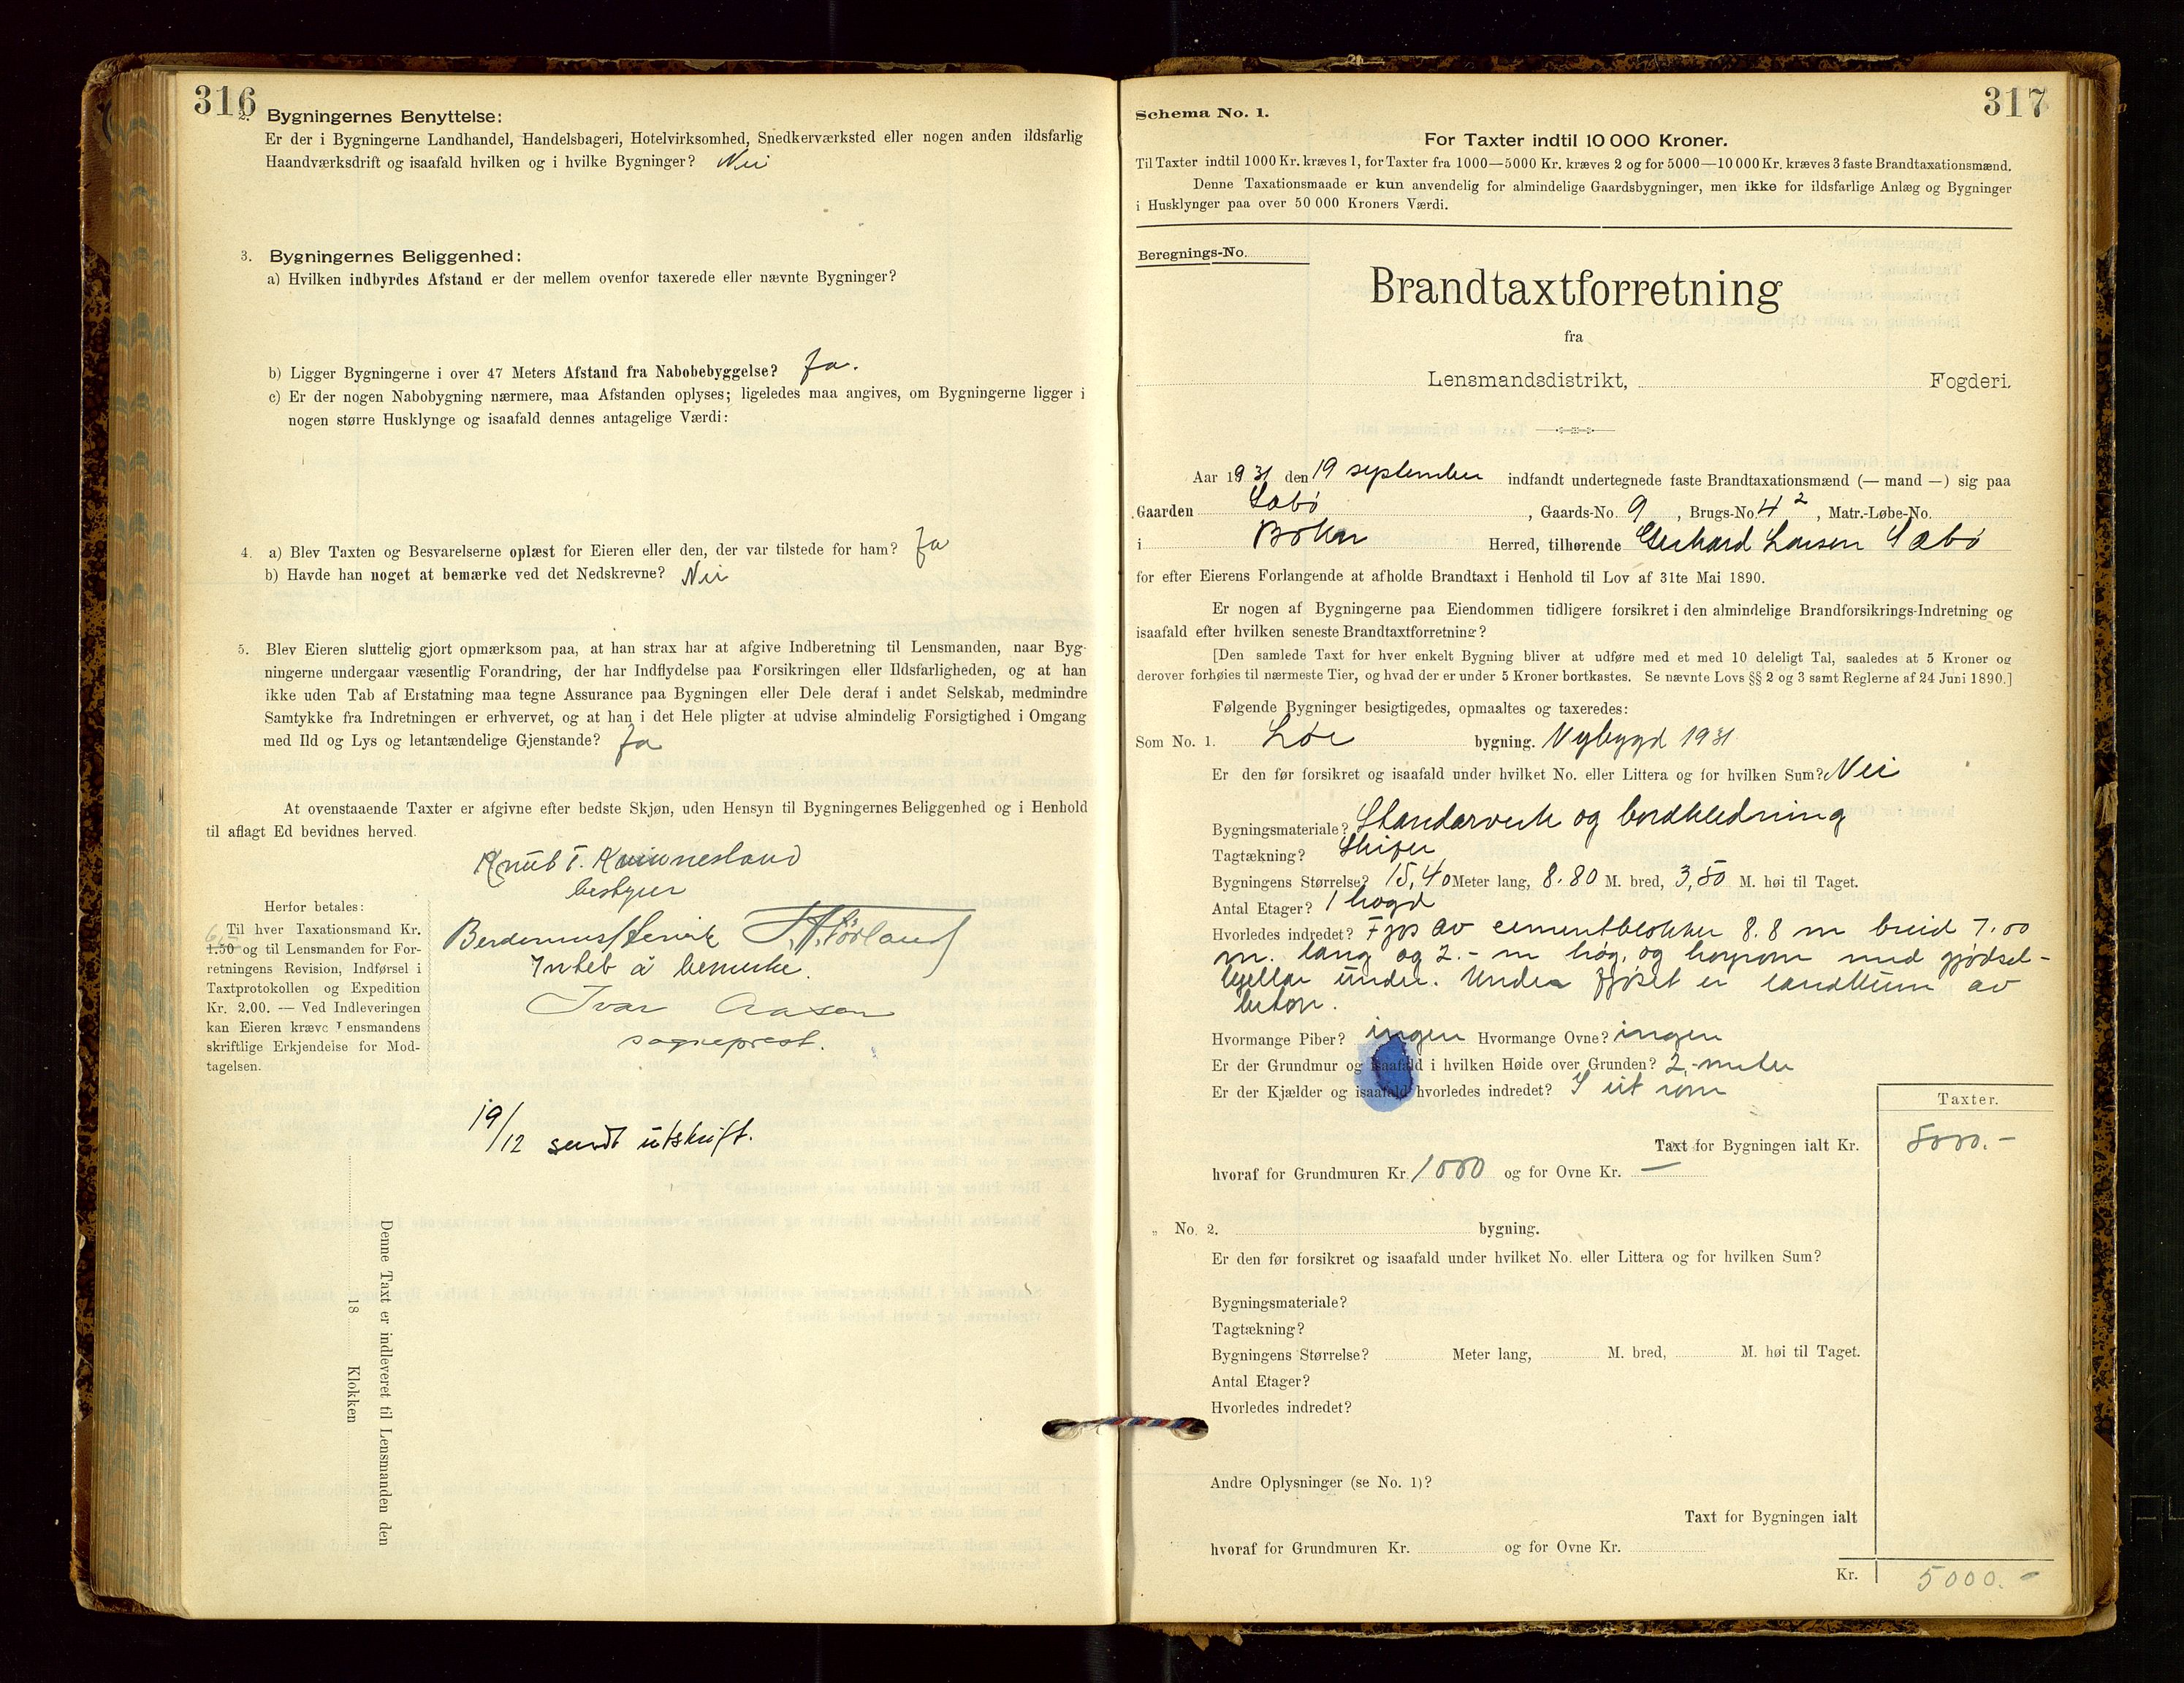 316
2. Bygningernes Benyttelse:
Er der i Bygningerne Landhandel, Handelsbageri, Hotelvirksomhed, Snedkerværksted eller nogen anden ildsfarlig
Haandværksdrift og isaafald hvilken og i hvilke Bygninger? Nei
3. Bygningernes Beliggenhed:
a) Hvilken indbyrdes Afstand er der mellem ovenfor taxerede eller nævnte Bygninger?
b) Ligger Bygningerne i over 47 Meters Afstand fra Nabobebyggelse? Ja.
c) Er der nogen Nabobygning nærmere, maa Afstanden oplyses; ligeledes maa angives, om Bygningerne ligger i
nogen større Husklynge og isaafald dennes antagelige Værdi:
4. a) Blev Taxten og Besvarelserne oplæst for Eieren eller den, der var tilstede for ham? Ja
b) Havde han noget at bemærke ved det Nedskrevne? Nei
5. Blev Eieren sluttelig gjort opmærksom paa, at han strax har at afgive Indberetning til Lensmanden, naar Byg-
ningerne undergaar væsentlig Forandring, der har Indflydelse paa Forsikringen eller Ildsfarligheden, og at han
ikke uden Tab af Erstatning maa tegne Assurance paa Bygningen eller Dele deraf i andet Selskab, medmindre
Samtykke fra Indretningen er erhvervet, og at han i det Hele pligter at udvise almindelig Forsigtighed i Omgang
med Ild og Lys og letantændelige Gjenstande? Ja
At ovenstaaende Taxter er afgivne efter bedste Skjøn, uden Hensyn til Bygningernes Beliggenhed og i Henhold
til aflagt Ed bevidnes herved.
Knut T. Kvinnesland
bestyrer
Herfor betales:
Til hver Taxationsmand Kr.
1.50 og til Lensmanden for For-
retningens Revision, Indførsel i
Taxtprotokollen og Expedition
Kr. 2.00. — Ved Indleveringen
kan Eieren kræve Lensmandens
skriftlige Erkjendelse for Mod-
tagelsen.
Intet å bemerke.
Ivar Aasen
sogneprest.
19/12 sendt utskrift.
Denne Taxt er indleveret til Lensmanden den
18 Klokken
317
Schema No. 1.
For Taxter indtil 10 000 Kroner.
Til Taxter indtil 1000 Kr. kræves 1, for Taxter fra 1000—5000 Kr. kræves 2 og for 5000—10 000 Kr. kræves 3 faste Brandtaxationsmænd.
Denne Taxationsmaade er kun anvendelig for almindelige Gaardsbygninger, men ikke for ildsfarlige Anlæg og Bygninger
i Husklynger paa over 50 000 Kroners Værdi.
Beregnings-No.
Brandtaxtforretning
fra
Lensmandsdistrikt, Fogderi.
Aar 1931 den 19 september indfandt undertegnede faste Brandtaxationsmænd (— mand —) sig paa
Gaarden Sæbø, Gaards-No. 9, Brugs-No. 4 2, Matr.-Løbe-No.
i Bokn Herred, tilhørende Gerhard Larsen Sæbø
for efter Eierens Forlangende at afholde Brandtaxt i Henhold til Lov af 31te Mai 1890.
Er nogen af Bygningerne paa Eiendommen tidligere forsikret i den almindelige Brandforsikrings-Indretning og
isaafald efter hvilken seneste Brandtaxtforretning?
[Den samlede Taxt for hver enkelt Bygning bliver at udføre med et med 10 deleligt Tal, saaledes at 5 Kroner og
derover forhøies til nærmeste Tier, og hvad der er under 5 Kroner bortkastes. Se nævnte Lovs §§ 2 og 3 samt Reglerne af 24 Juni 1890.]
Følgende Bygninger besigtigedes, opmaaltes og taxeredes:
Som No. 1. Løe bygning. Nybygd 1931
Er den før forsikret og isaafald under hvilket No. eller Littera og for hvilken Sum? Nei
Bygningsmateriale? Standarverk og bordkledning
Tagtækning? Skifer
Bygningens Størrelse? 15,40 Meter lang, 8.80 M. bred, 3,50 M. høi til Taget.
Antal Etager? 1 høgd
Hvorledes indredet? Fjøs av cementblokker 8.8 m breid 7.00
m. lang og 2.- m høg, og høyrom med gjødsel-
kjellar under. Under fjøset er landkum av
beton.
Hvormange Piber? ingen Hvormange Ovne? ingen
Er der Grundmur og isaafald i hvilken Høide over Grunden? 2,- meter
Er der Kjælder og isaafald hvorledes indredet? I eit rom
Taxter.
Taxt for Bygningen ialt Kr. 5000.-
hvoraf for Grundmuren Kr. 1000 og for Ovne Kr. —
„ No. 2. bygning.
Er den før forsikret og isaafald under hvilket No. eller Littera og for hvilken Sum?
Bygningsmateriale?
Tagtækning?
Bygningens Størrelse? Meter lang, M. bred, M. høi til Taget.
Antal Etager?
Hvorledes indredet?
Andre Oplysninger (se No. 1)?
Taxt for Bygningen ialt
hvoraf for Grundmuren Kr. og for Ovne Kr.
Kr. 5000.-